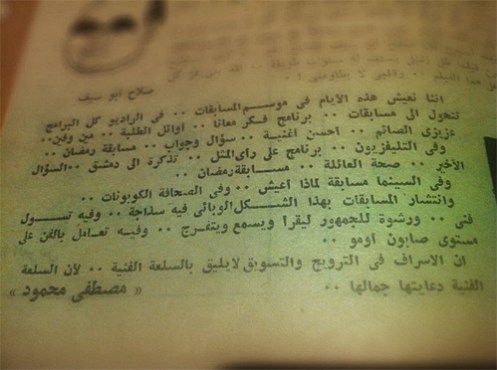 صلاح ابو سيف
اننا نعيش هذه الأيام في موسم المسابقات .. في الراديو كل البرامج
تتحول الى مسابقات .. برنامج فكر معانا .. أوائل الطلبة .. من وفين ..
عزيزى الصائم .. احسن اغنية .. سؤال وجواب .. مسابقة رمضان ..
وفى التليفزيون .. برنامج على رأى المثل .. تذكرة الى دمشق .. السؤال
الأخير .. صحة العائلة .. مسابقة رمضان ..
وفى السينما مسابقة لماذا أعيش .. وفى الصحافة الكوبونات ..
وانتشار المسابقات بهذا الشكل الوبائى فيه سذاجة .. وفيه تسول
فنى .. ورشوة للجمهور ليقرأ ويسمع ويتفرج .. وفيه تعامل بالفن على
مستوى صابون أومو ..
ان الاسراف فى الترويج والتسويق لايليق بالسلعة الفنية .. لأن السلعة
الفنية دعايتها جمالها .. « مصطفى محمود »